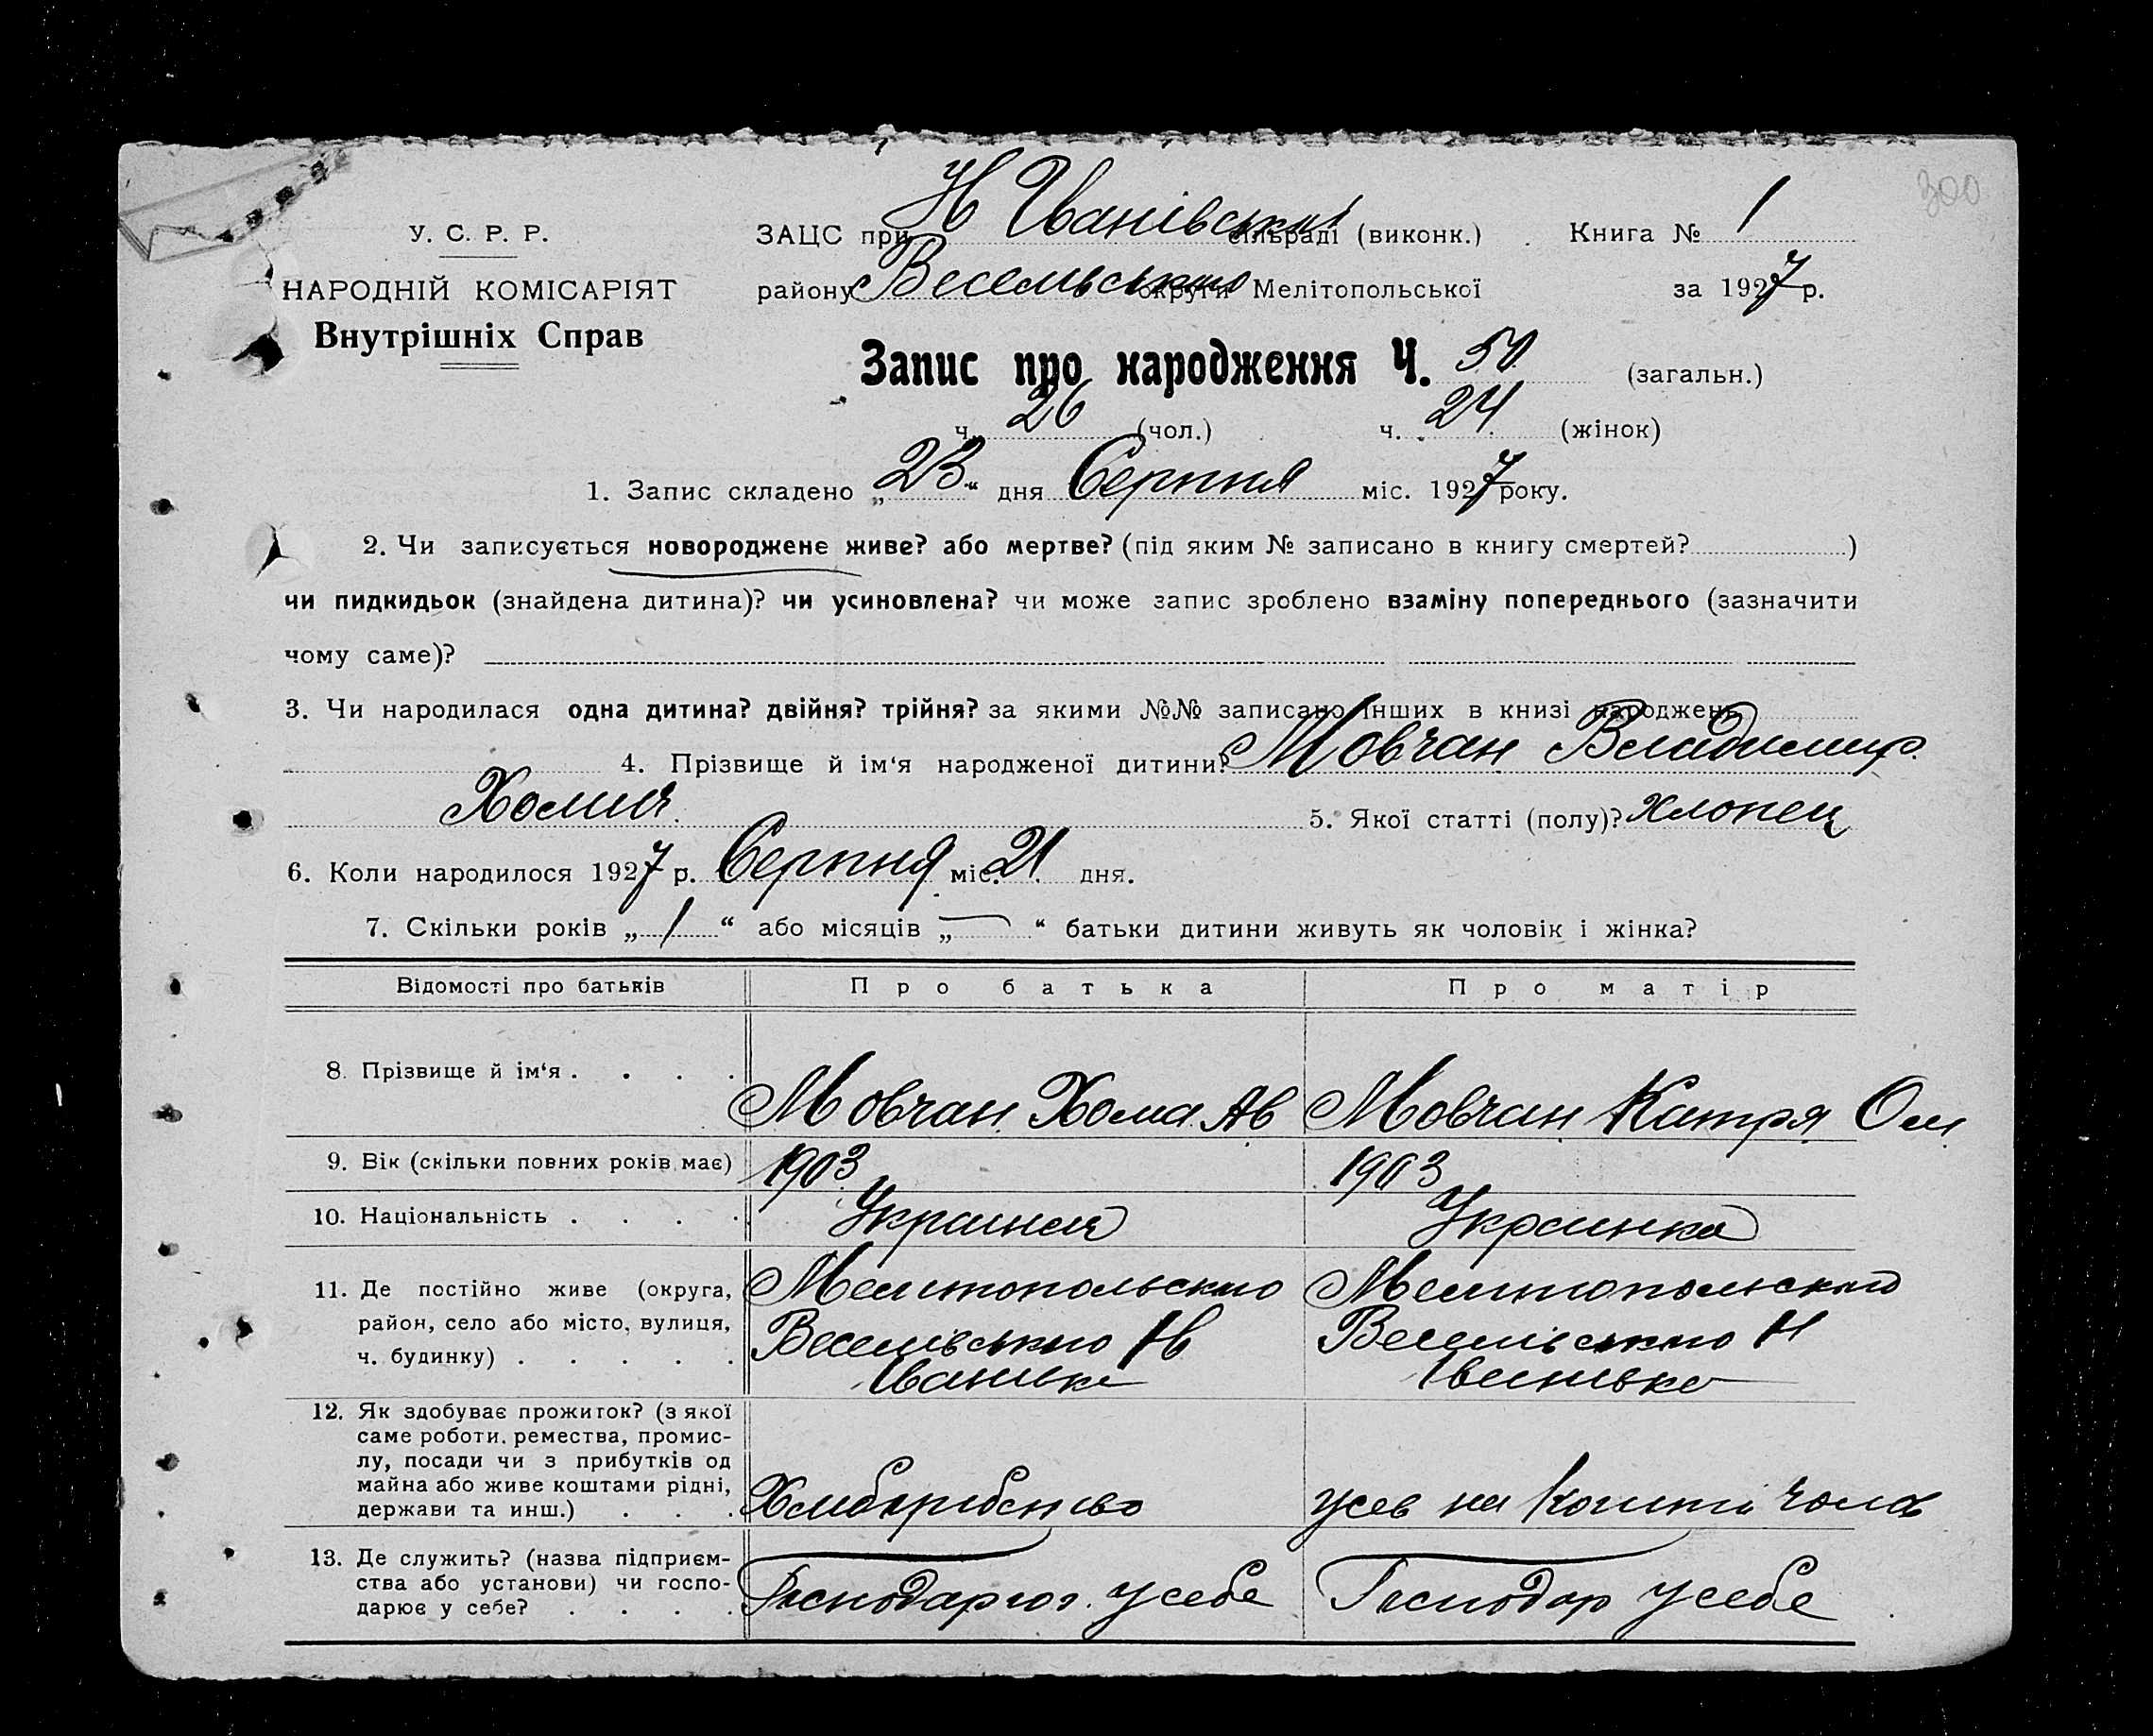 300
У. С. Р. Р.
НАРОДНІЙ КОМІСАРІЯТ
Внутрішніх Справ
ЗАЦС при Н Іванівській сільраді (виконк.) Книга № 1
району Весельського округи Мелітопольської за 1927 р.
Запис про народження Ч. 50 (загальн.)
ч. 26 (чол.) ч. 24 (жінок)
1. Запис складено „23“ дня Серпня міс. 1927 року.
2. Чи записується новороджене живе? або мертве? (під яким № записано в книгу смертей? )
чи пидкидьок (знайдена дитина)? чи усиновлена? чи може запис зроблено взаміну попереднього (зазначити
чому саме)?
3. Чи народилася одна дитина? двійня? трійня? за якими №№ записано інших в книзі народжень
4. Прізвище й ім‘я народженої дитини? Мовчан Владимир
Хомич 5. Якої статті (полу)? хлопец
6. Коли народилося 1927 р. Серпня міс. 21 дня.
7. Скільки років „1“ або місяців „—“ батьки дитини живуть як чоловік і жінка?
Відомості про батьків Про батька Про матір
8. Прізвище й ім‘я Мовчан Хома Ав Мовчан Катря Ом
9. Вік (скільки повних років має) 1903 1903
10. Національність Украинец Украинка
11. Де постійно живе (округа, Мелитопольского Мелитопольского
район, село або місто, вулиця, Веселівського Ив Веселівського Н
ч. будинку) Іванівка Іванівка
12. Як здобуває прожиток? (з якої
саме роботи, ремества, промис-
лу, посади чи з прибутків од
майна або живе коштами рідні,
держави та инш.) Хлиборобство усев на кошті чолов
13. Де служить? (назва підприєм-
ства або установи) чи госпо-
дарює у себе? Господарює у себе Господар у себе